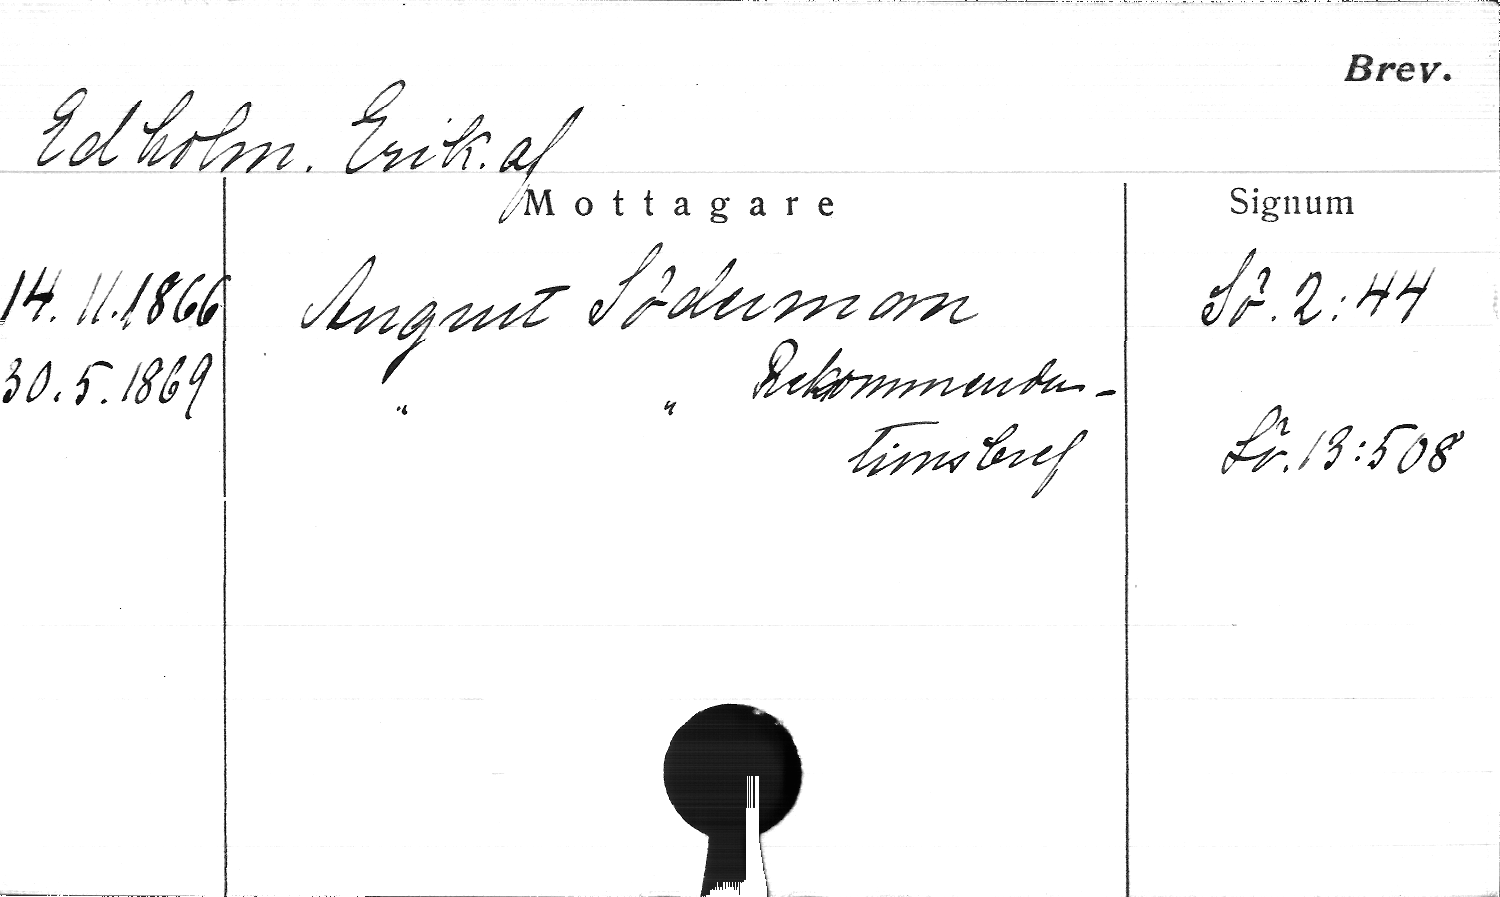 Brev.
Edholm. Erik. af
Mottagare
Signum
14. 11. 1866 August Söderman Sö. 2:44
30. 5. 1869 " " Rekommenda-
tionsbref Sö. 13:508